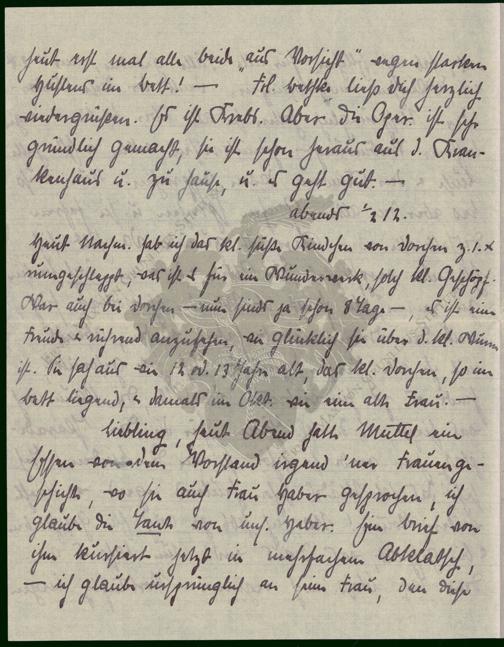 heut erst mal alle beide „aus Vorsicht" wegen starken
Hustens im Bett! — Frl. Bethke ließ dich herzlich
wiedergrüßen. Es ist Krebs. Aber die Oper. ist sehr
gründlich gemacht, sie ist schon heraus aus d. Kran-
kenhaus u. zu Hause, u. es geht gut. —
abends ½ 12.
Heut Nachm. hab ich das kl. süße Kindchen von Dorchen z. 1. x
rumgeschleppt, was ist es für ein Wunderwerk, solch kl. Geschöpf.
War auch bei Dorchen — nun sinds ja schon 8 Tage —, es ist eine
Freude & rührend anzusehen, wie glücklich sie über d. kl. Wurm
ist. Sie sah aus wie 12 od. 13 Jahre alt, das kl. Dorchen, so im
Bett liegend, & damals im Okt. wie eine alte Frau. —
Liebling, heut Abend hatte Muttel ein
Essen von dem Vorstand irgend 'ner Frauenge-
schichte, wo sie auch Frau Haber gesprochen, ich
glaube die Tante von uns. Haber. Ein Brief von
ihm kursiert jetzt in mehrfachem Abklatsch,
— ich glaube ursprünglich an seine Frau, den diese